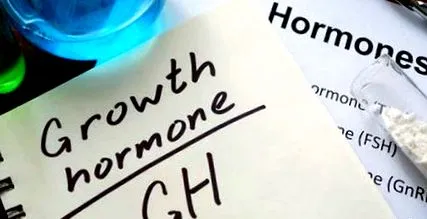 Growth
hormone
GH
Hormones
ormone (T
ne (FSH)
e (GnR